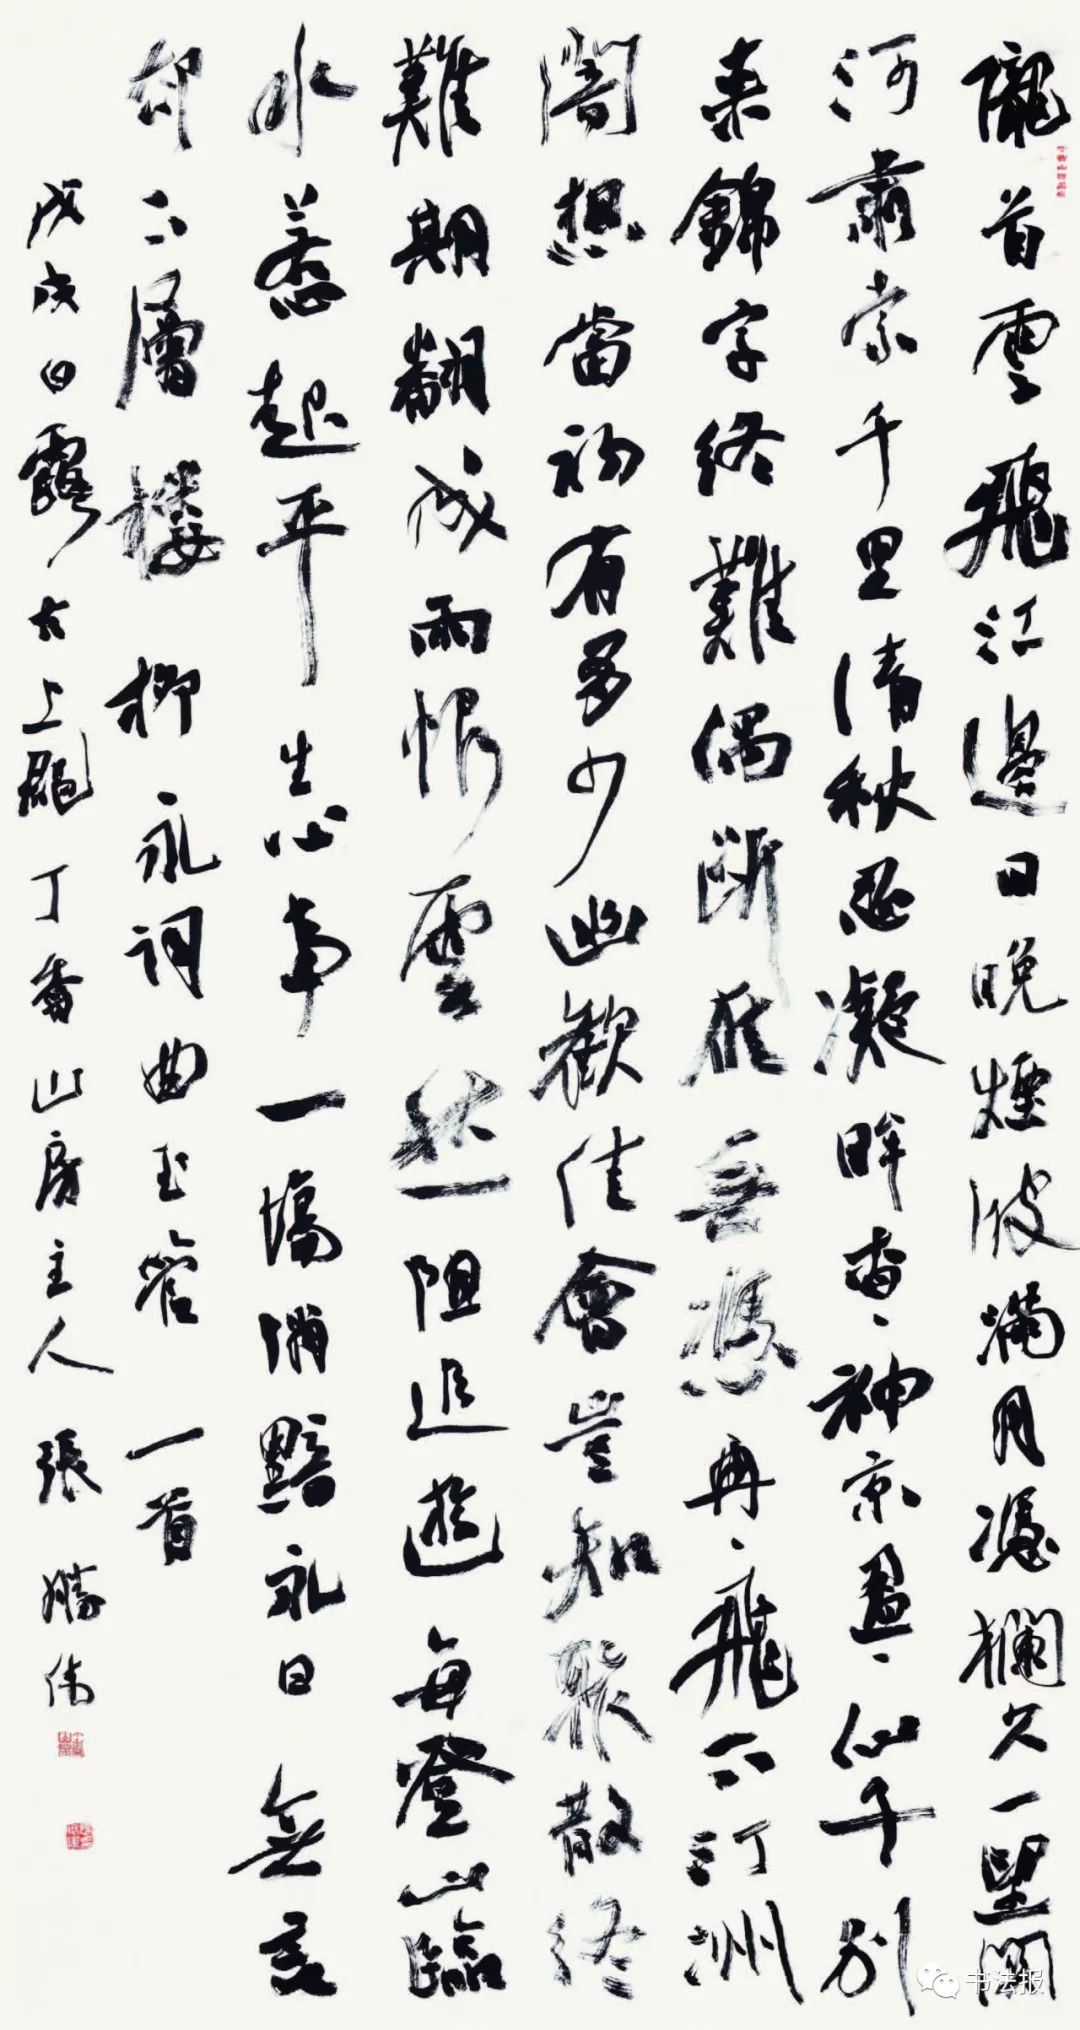 隴首雲飛江邊日晚煙波滿月憑欄久一望關
河肅索千里清秋忍凝眸杳、神京盈、仙子别
来錦字終難偶斷雁無憑冉、飛下汀洲
闇想當初有多少幽歡佳會豈知聚散終
難期翻成雨恨雲愁阻追遊每登山臨
水惹起平生心事一場消黯永日無言
却下層樓柳永詞曲玉管一首
戊戌白露古上郡丁香山房主人張勝偉
书法报